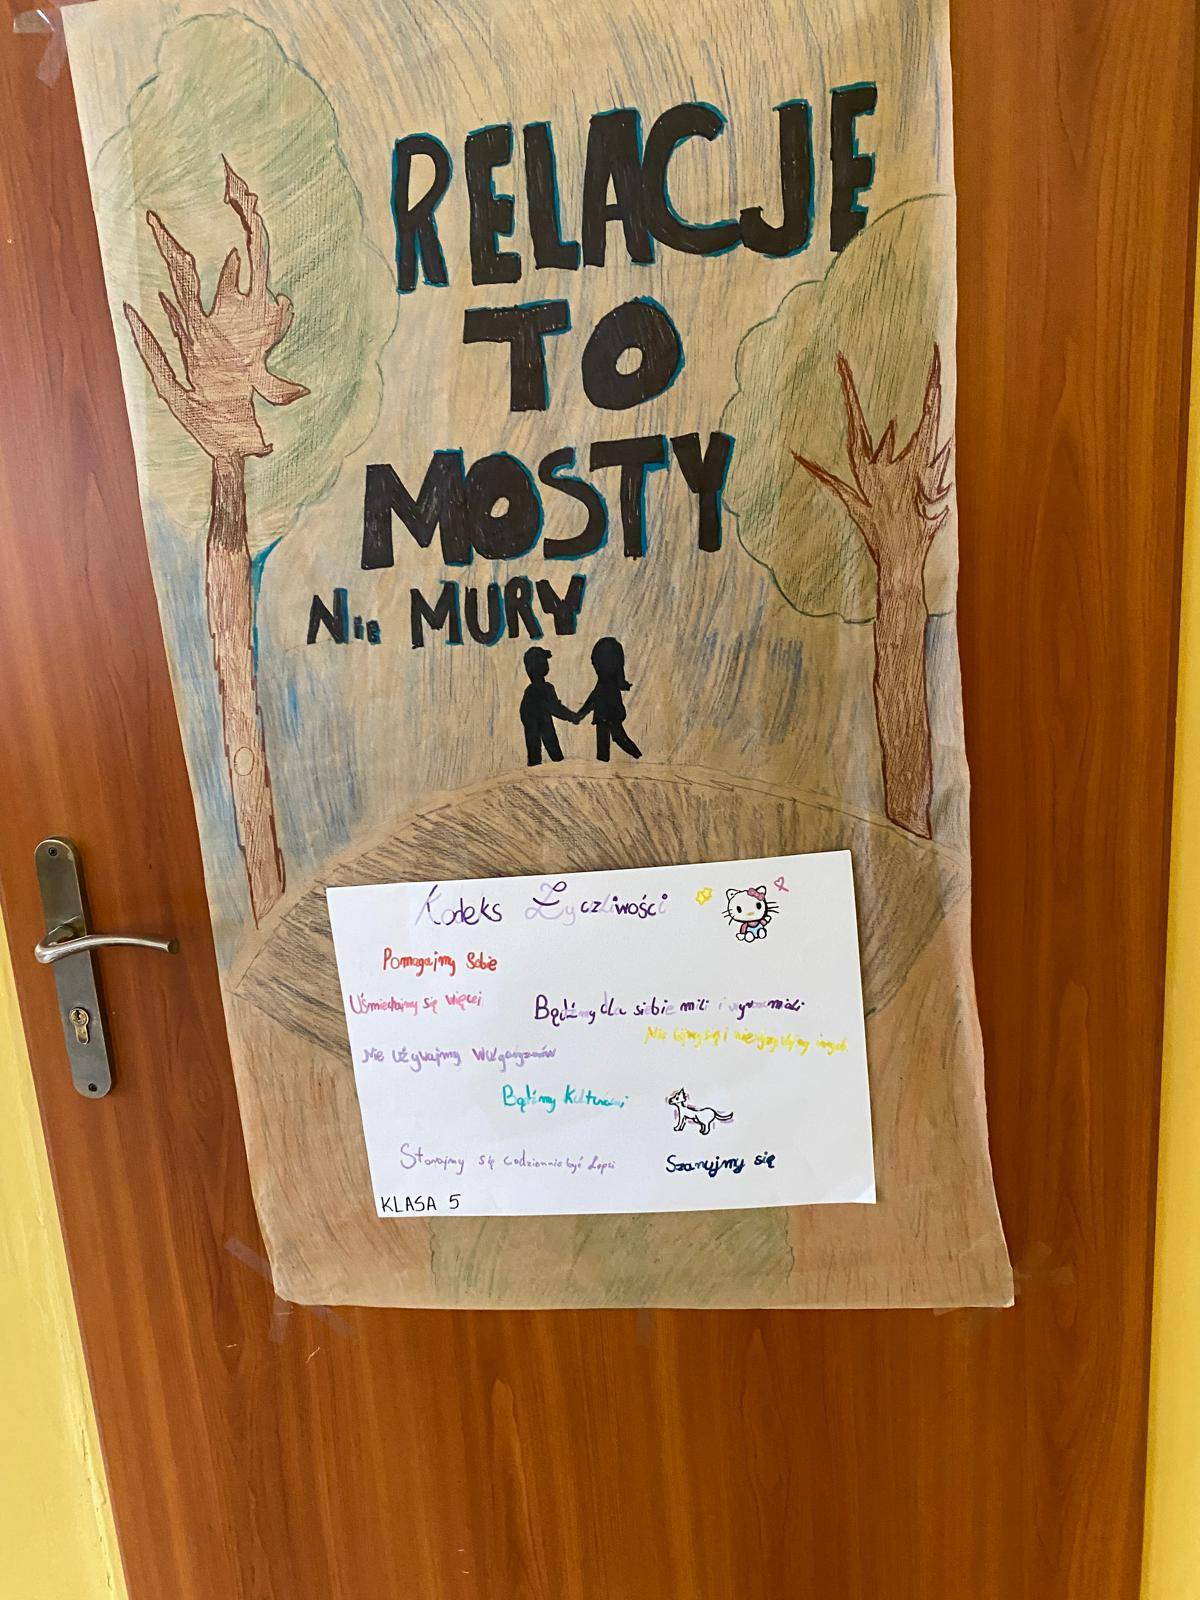 RELACJE
TO
MOSTY
Nie MURY
Kodeks Życzliwości
Pomagajmy Sobie
Uśmiechajmy się więcej
Bądźmy dla siebie mili i wyrozumiali
Nie bijmy się i nie wyzywajmy innych
Nie używajmy wulgaryzmów
Bądźmy Kulturalni
Starajmy się codziennie być lepsi
Szanujmy się
KLASA 5